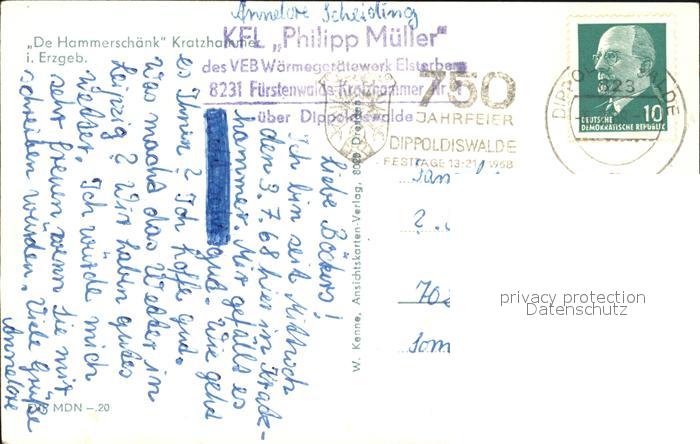 Annelore Scheiding
„De Hammerschänk" Kratzhammer
i. Erzgeb.
KFL „Philipp Müller"
des VEB Wärmegerätewerk Elsterberg
8231 Fürstenwalde-Kratzhammer Nr. 1
über Dippoldiswalde
750
JAHRFEIER
DIPPOLDISWALDE
FESTTAGE 13-21 1968
DIPPOLDISWALDE
823
DEUTSCHE
DEMOKRATISCHE REPUBLIK
10
Liebe Böckers!
Ich bin seit Mittwoch
den 3. 7. 68 hier in Kratz-
hammer. Mir gefällt es
gut. Wie geht
es Ihnen? Ich hoffe gut.
Was macht das Wetter in
Leipzig? Wir haben gutes
Wetter. Ich würde mich
sehr freuen wenn Sie mir
schreiben würden. Viele Grüße
Annelore
W. Kenne, Ansichtskarten-Verlag, 8020 Dresden
MDN —.20
Fam
70
Som
privacy protection
Datenschutz